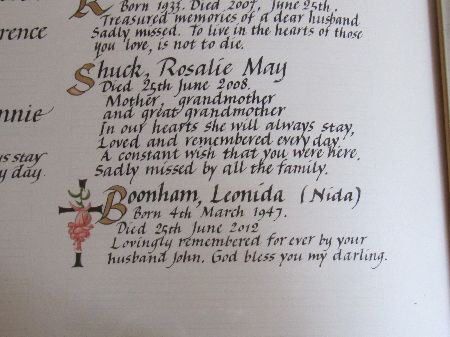 Born 1933. Died 2007, June 25th.
Treasured memories of a dear husband
Sadly missed. To live in the hearts of those
you love, is not to die.
Shuck, Rosalie May
Died 25th June 2008.
Mother, grandmother
and great grandmother
In our hearts she will always stay,
Loved and remembered every day.
A constant wish that you were here.
Sadly missed by all the family.
Boonham, Leonida (Nida)
Born 4th March 1947.
Died 25th June 2012
Lovingly remembered for ever by your
husband John. God bless you my darling.